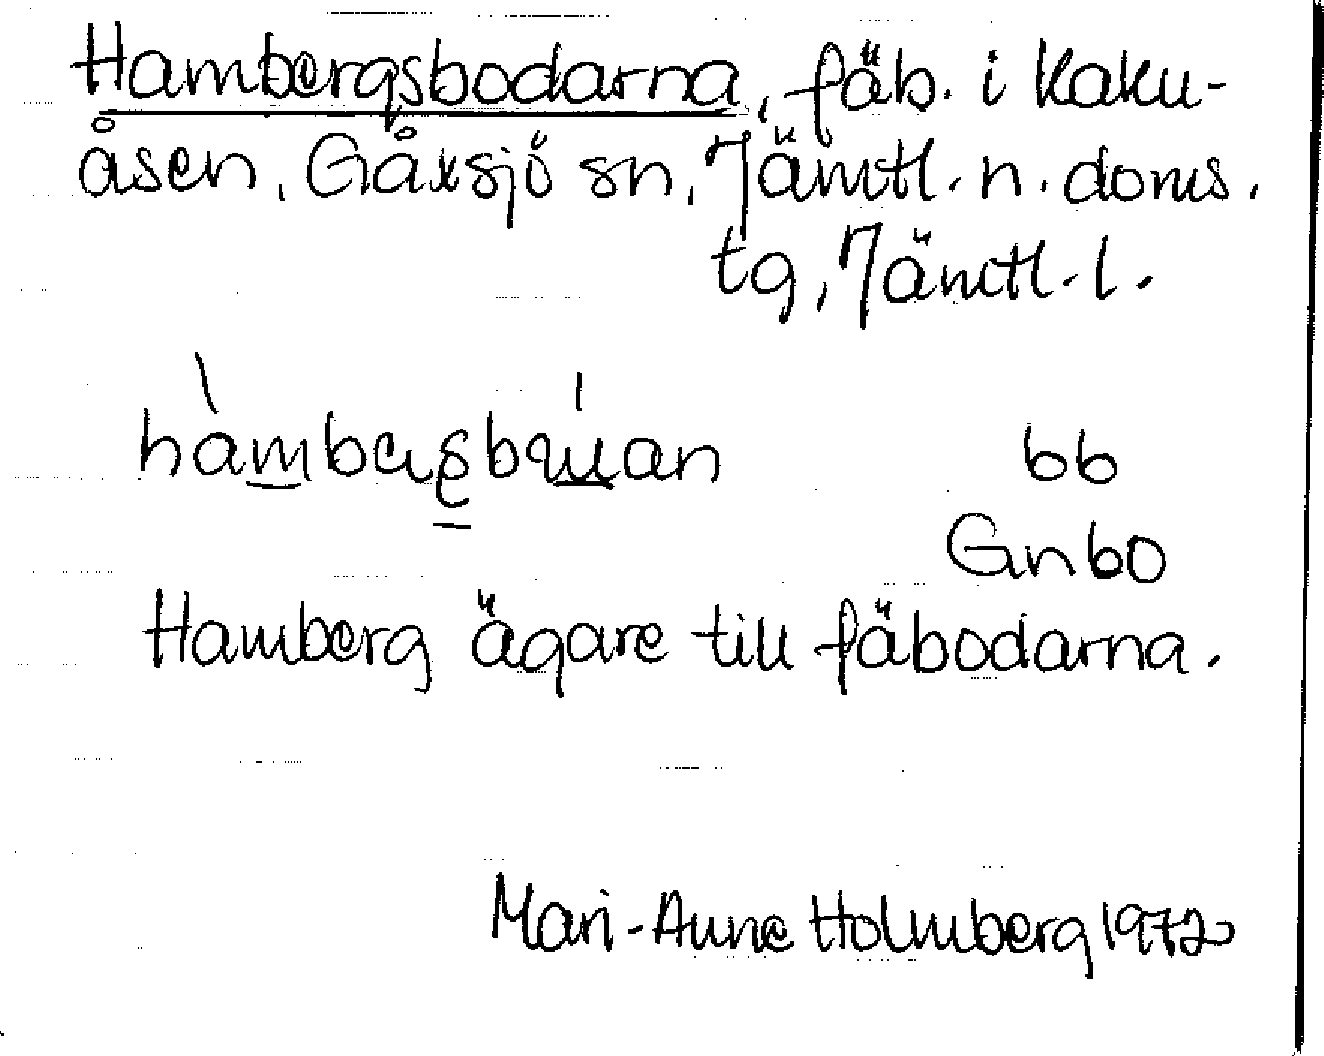 Hambergsbodarna, fäb. i Kaku-
åsen, Gåxsjö sn, Jämtl. n. doms.
tg, Jämtl. l.
bb
Gn 60
Hamberg ägare till fäbodarna.
Mari-Anne Holmberg 1972